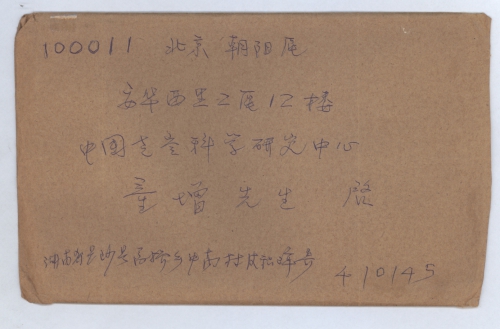 100011 北京 朝阳区
安华西里二区12楼
中国老龄科学研究中心
童增先生 启
湖南省长沙县高桥乡中南村 寄 410145